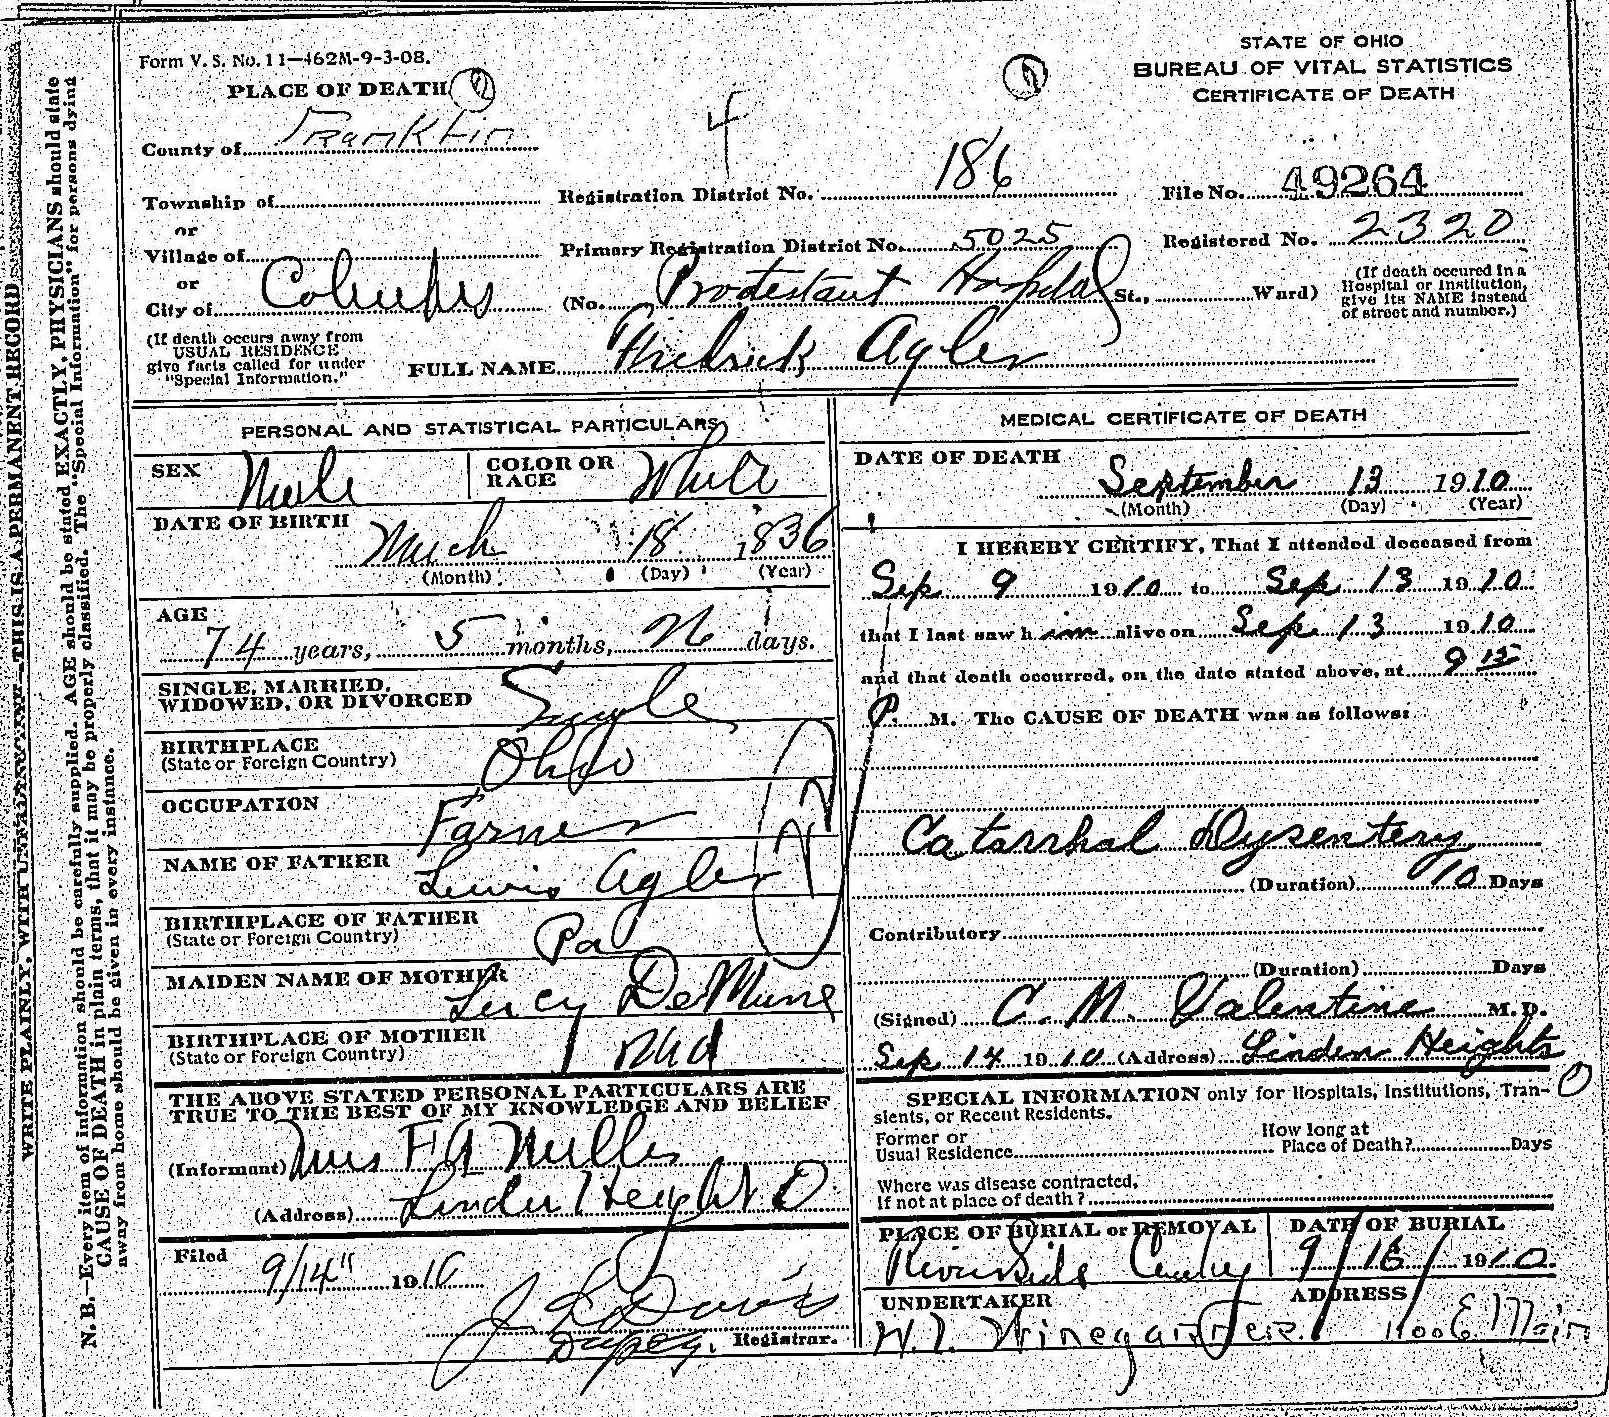 Form V. S. No. 11—462M-9-3-08.
PLACE OF DEATH
STATE OF OHIO
BUREAU OF VITAL STATISTICS
CERTIFICATE OF DEATH
County of Franklin
Township of
or
Village of
or
City of Columbus
Registration District No. 186
File No. 49264
Primary Registration District No. 5025
Registered No. 2320
(No. Protestant Hospital St., Ward)
(If death occured in a
Hospital or Institution,
give its NAME instead
of street and number.)
(If death occurs away from
USUAL RESIDENCE
give facts called for under
"Special Information."
FULL NAME Agler
PERSONAL AND STATISTICAL PARTICULARS
SEX Male
COLOR OR
RACE White
DATE OF BIRTH March 18 1836
(Month) (Day) (Year)
AGE
74 years, 5 months, 26 days.
SINGLE, MARRIED,
WIDOWED, OR DIVORCED Single
BIRTHPLACE
(State or Foreign Country) Ohio
OCCUPATION Farmer
NAME OF FATHER Lewis Agler
BIRTHPLACE OF FATHER
(State or Foreign Country) Pa
MAIDEN NAME OF MOTHER Lucy DeMune
BIRTHPLACE OF MOTHER
(State or Foreign Country) Md
THE ABOVE STATED PERSONAL PARTICULARS ARE
TRUE TO THE BEST OF MY KNOWLEDGE AND BELIEF
(Informant) Mrs F A Miller
(Address) Linden Heights O
Filed 9/14" 1910
J L Davis
Deputy. Registrar.
MEDICAL CERTIFICATE OF DEATH
DATE OF DEATH
September 13 1910
(Month) (Day) (Year)
I HEREBY CERTIFY, That I attended deceased from
Sep 9 1910 to Sep 13 1910
that I last saw him alive on Sep 13 1910
and that death occurred, on the date stated above, at 9 15
P. M. The CAUSE OF DEATH was as follows:
Catarrhal Dysentery
(Duration) 10 Days
Contributory
(Duration) Days
(Signed) C. M. Valentine M. D.
Sep 14 1910 (Address) Linden Heights
O
SPECIAL INFORMATION only for Hospitals, Institutions, Tran-
sients, or Recent Residents.
Former or
Usual Residence
How long at
Place of Death? Days
Where was disease contracted,
if not at place of death?
PLACE OF BURIAL or REMOVAL
Riverside Cemetery
DATE OF BURIAL
9/16/1910.
UNDERTAKER
W. T. Winegarner.
ADDRESS
1100 E. Main
WRITE PLAINLY, WITH UNFADING INK—THIS IS A PERMANENT RECORD
N. B.—Every item of information should be carefully supplied. AGE should be stated EXACTLY, PHYSICIANS should state
CAUSE OF DEATH in plain terms, that it may be properly classified. The "Special Information" for persons dying
away from home should be given in every instance.